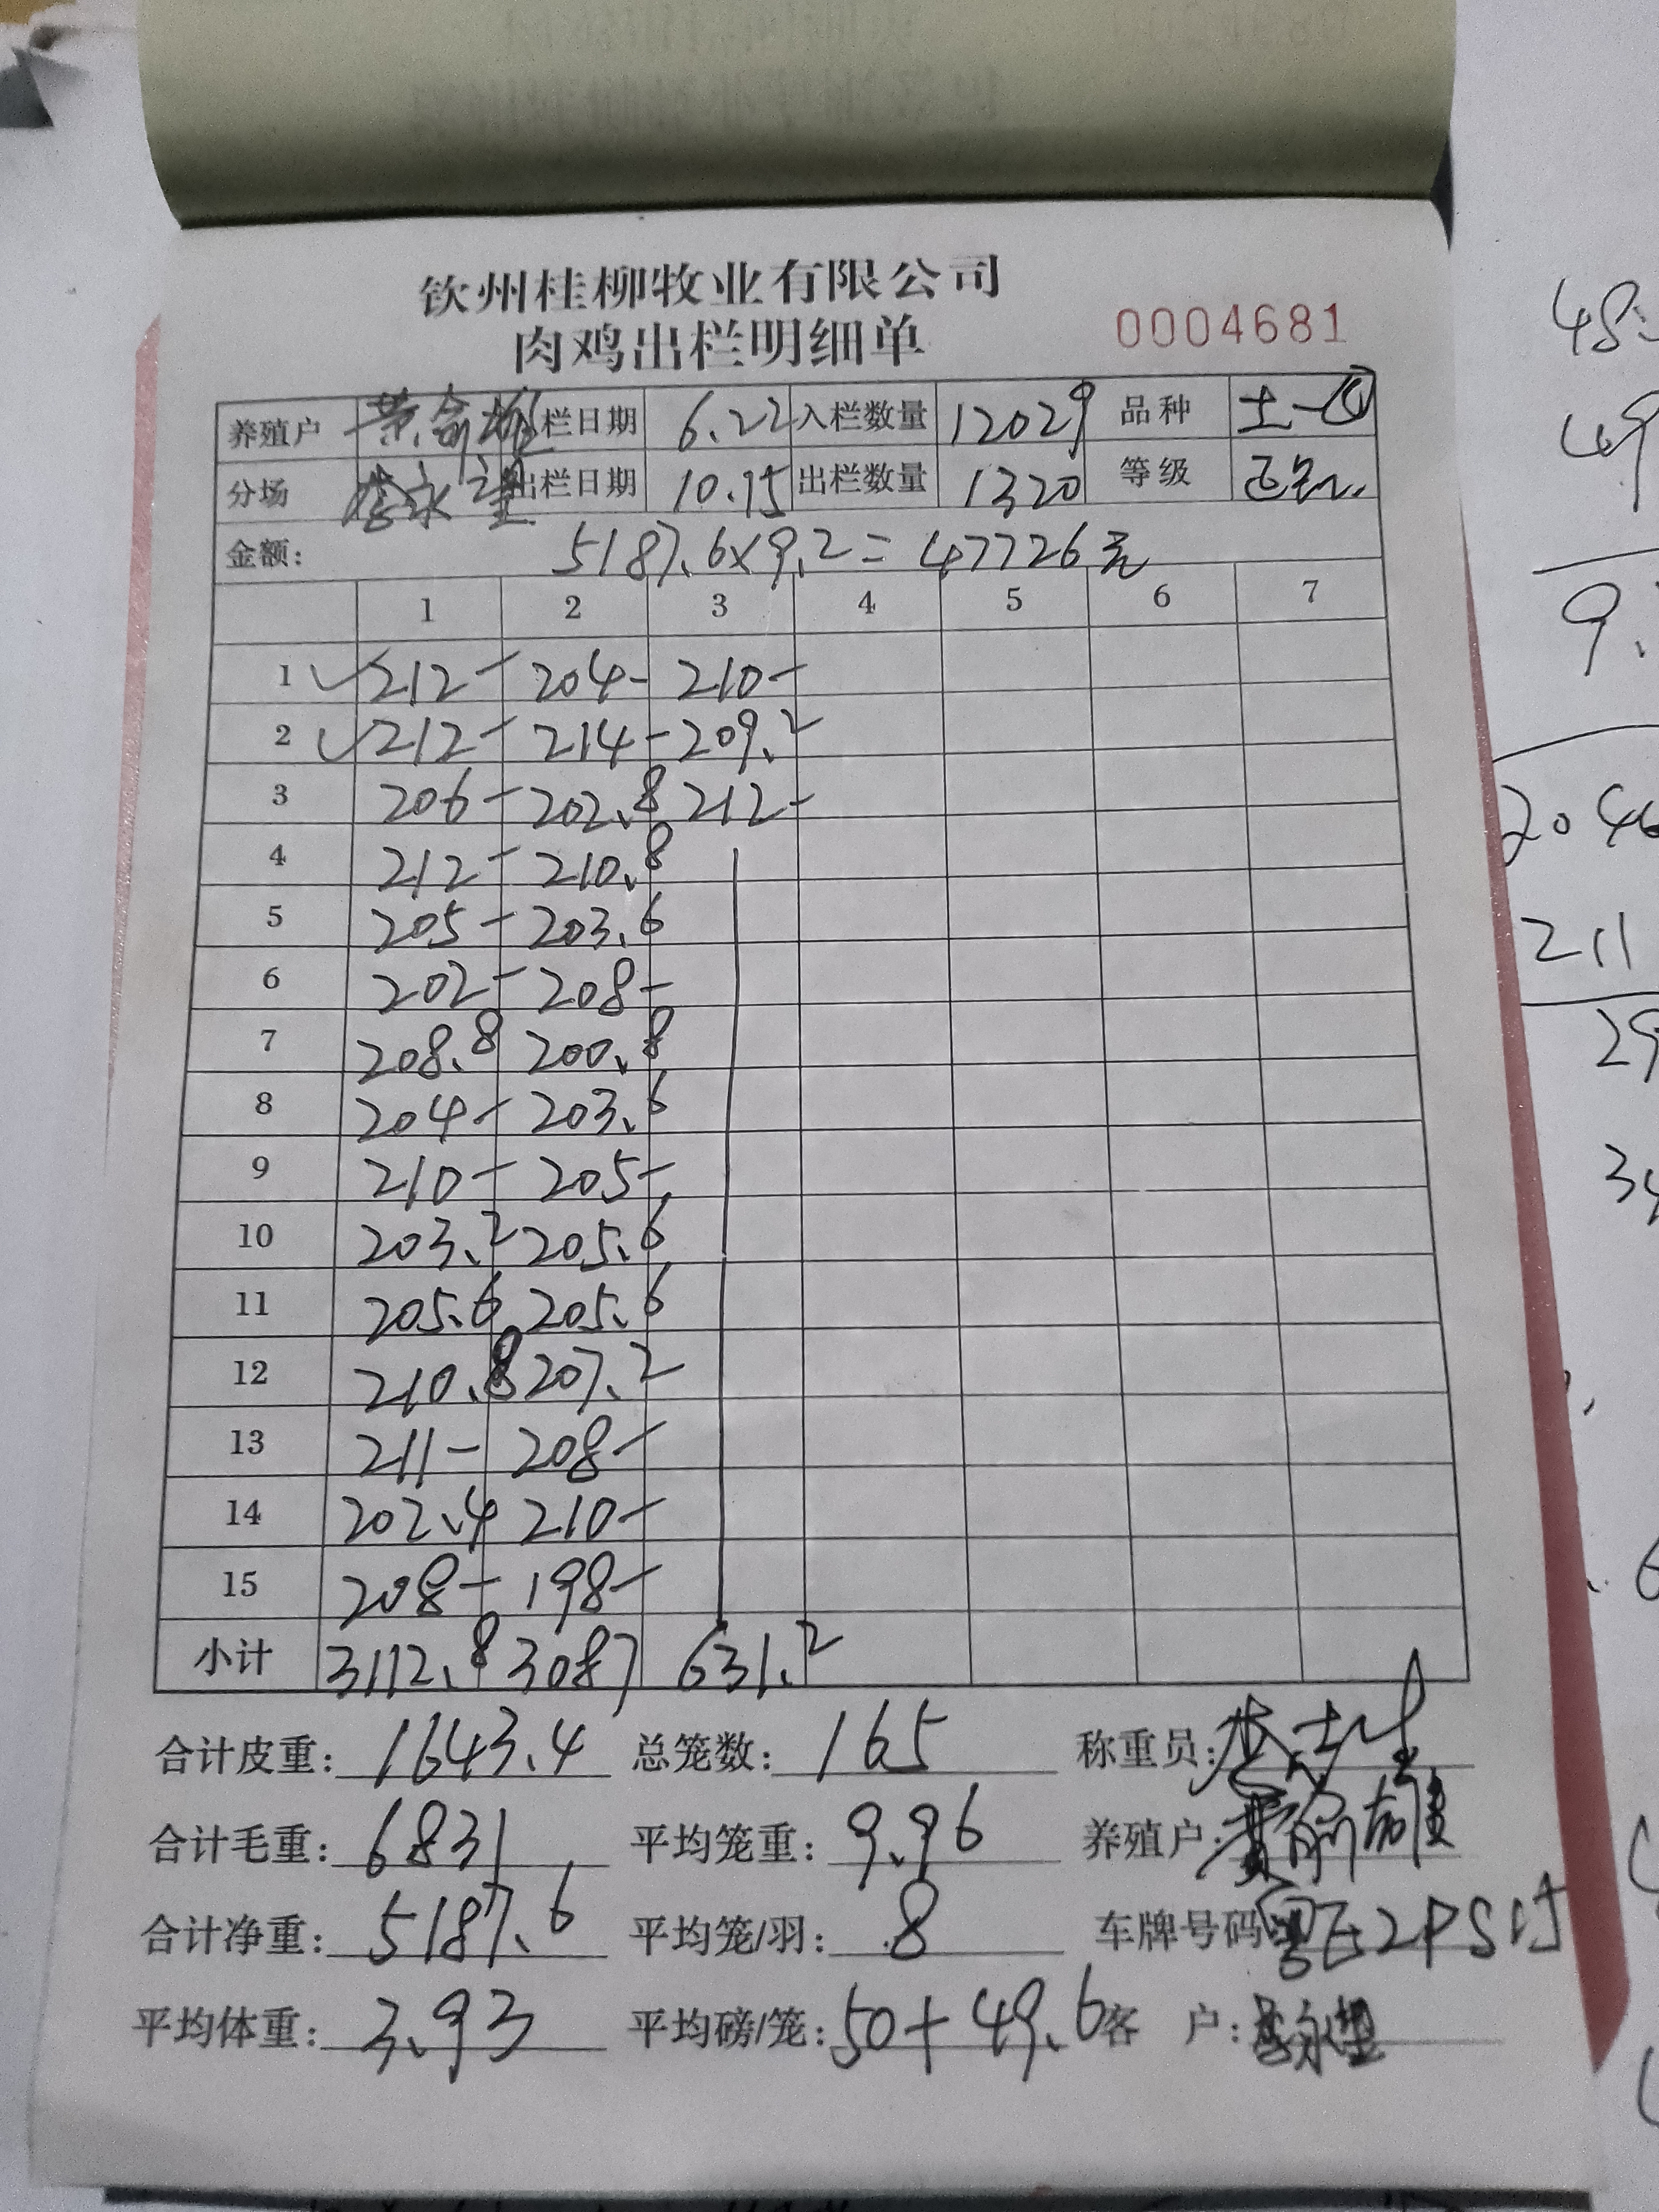 钦州桂柳牧业有限公司
肉鸡出栏明细单 0004681
养殖户 黄俞雄 栏日期 6.22 入栏数量 12029 品种 土一
分场 李永望 出栏日期 10.15 出栏数量 1320 等级
金额: 5187.6×9.2=47726元
1 2 3 4 5 6 7
1 212- 204- 210-
2 212- 214- 209.2
3 206- 202.8 212-
4 212- 210.8
5 205- 203.6
6 202- 208-
7 208.8 200.8
8 204- 203.6
9 210- 205-
10 203.2 205.6
11 205.6 205.6
12 210.8 207.2
13 211- 208-
14 202.4 210-
15 208- 198-
小计 3112.8 3087 631.2
合计皮重: 1643.4 总笼数: 165 称重员:
合计毛重: 6831 平均笼重: 9.96 养殖户: 黄俞雄
合计净重: 5187.6 平均笼/羽: 8 车牌号码
平均体重: 3.93 平均磅/笼: 50+49.6 客 户: 李永望
49
9.
204
211
29
34